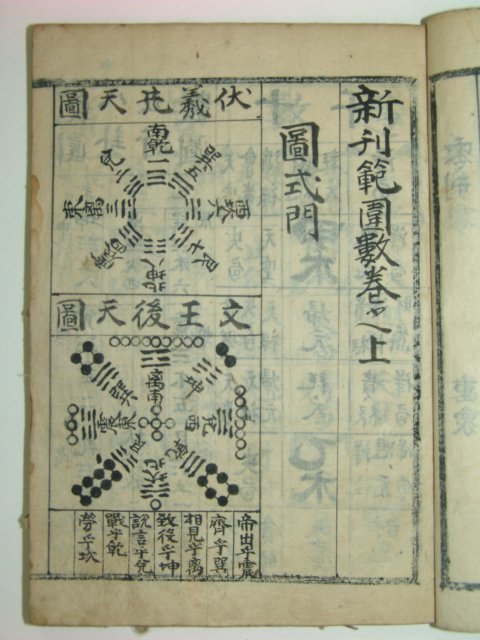 新刊範圍數卷之上
圖式門
伏羲先天圖
南乾一
巽五
兌二
艮七
北坤八
文王後天圖
離南
坤
兌西
巽
震東
艮
乾
坎北
帝出乎震
齊乎巽
相見乎離
致役乎坤
說言乎兌
戰乎乾
勞乎坎